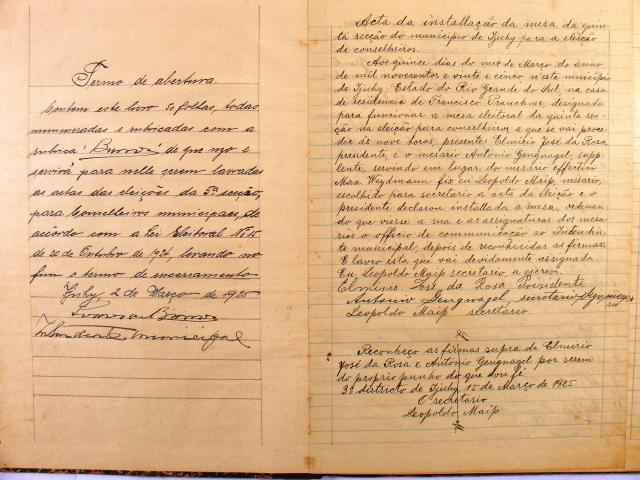 Termo de abertura
Contem este livro 50 folhas, todas
numeradas e rubricadas com a
rubrica "Barros" de que uso e
servirá para nelle serem lavradas
as actas das eleições da 5ª secção,
para Conselheiros municipaes, de
acordo com a Lei Eleitoral Nº
de 20 de Outubro de 1924, levando no
fim o termo de encerramento
Ijuhy, 2 de Março de 1925
Barros
Intendente Municipal
Acta da installação da mesa da quin
ta secção do municipio de Ijuhy para a eleição
de conselheiros.
Aos quinze dias do mez de Março do anno
de mil novecentos e vinte e cinco n'este municipio
de Ijuhy, Estado do Rio Grande do Sul, na casa
de residencia de Francisco, designado
para funccionar a mesa eleitoral da quinta sec
ção na eleição para conselheiros, a que se vai proce
der ás nove horas, presentes Elmirio José da Rosa
presidente, e o mesario Antonio Gengnagel, supp
lente, servindo em lugar do messrio effectivo
Max Weydmann fiz eu Leopoldo Maip, mesario,
escolhido para secretario a acta da eleição e o
presidente declarou installada a mesa, ordenan
do que viesse a sua e as assignaturas dos mesa
rios o officio de communicação ao Intenden
te municipal, depois de reconhecidas as firmas.
E lavro esta que vai devidamente assignada.
Eu, Leopoldo Maip secretario, a escrevi.
Elmirio José da Rosa Presidente
Antonio Gengnagel, secretario
Leopoldo Maip secretario.
Reconheço as firmas supra de Elmirio
José da Rosa e Antonio Gengnagel por serem
do proprio punho do que dou fé
3º districto de Ijuhy, 15 de Março de 1925
O secretario
Leopoldo Maip